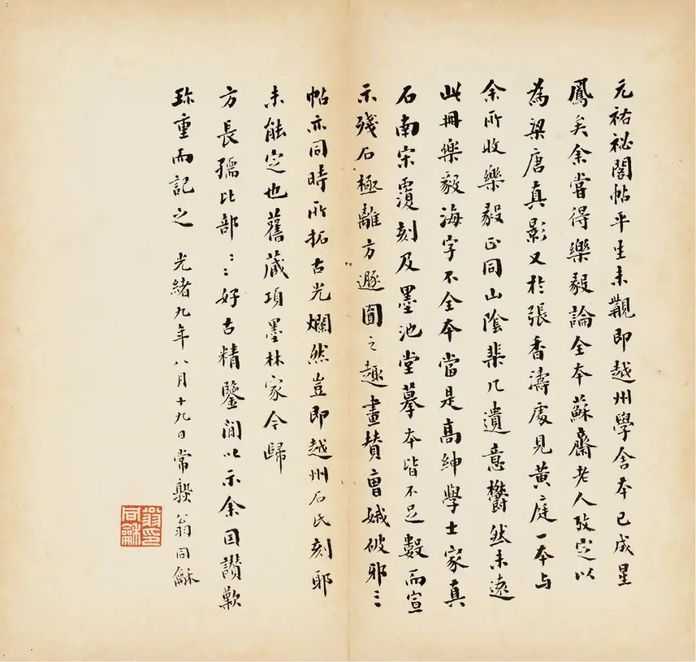 元祐祕閣帖平生未覯即越州學舍本已成星
鳳矣余嘗得樂毅論全本蘇齋老人攷定以
為梁唐真影又於張香濤處見黃庭一本与
余所收樂毅正同山陰棐几遺意欝然未遠
此冊樂毅海字不全本當是高紳學士家真
石南宋覆刻及墨池堂摹本皆不足數而宣
示殘石極離方遯圓之趣畫賛曹娥破邪三
帖亦同時所拓古光爛然豈即越州石氏刻耶
未能定也舊藏項墨林家今歸
方長孺比部〻〻好古精鑒閒以示余因讚歎
珎重而記之 光緒九年八月十九日常熟翁同龢
翁同龢印